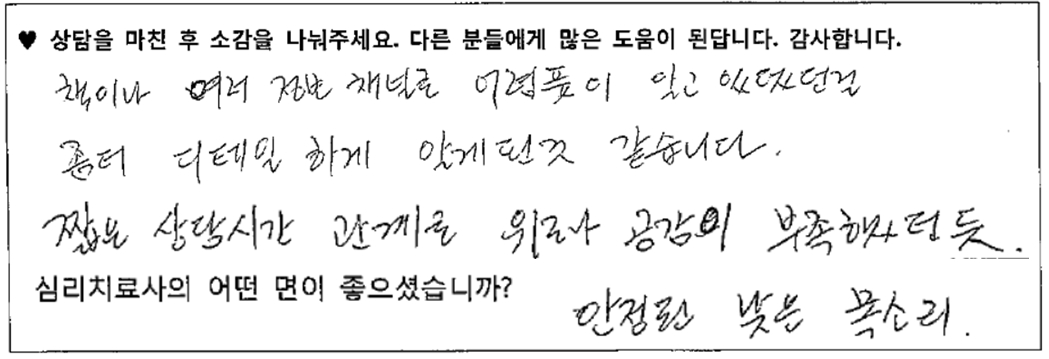 ♥ 상담을 마친 후 소감을 나눠주세요. 다른 분들에게 많은 도움이 된답니다. 감사합니다.
책이나 여러 정보 채널로 어렴풋이 알고 있었던걸
좀더 디테일 하게 알게된것 같습니다.
짧은 상담시간 관계로 위로나 공감이 부족했던 듯.
심리치료사의 어떤 면이 좋으셨습니까?
안정된 낮은 목소리.